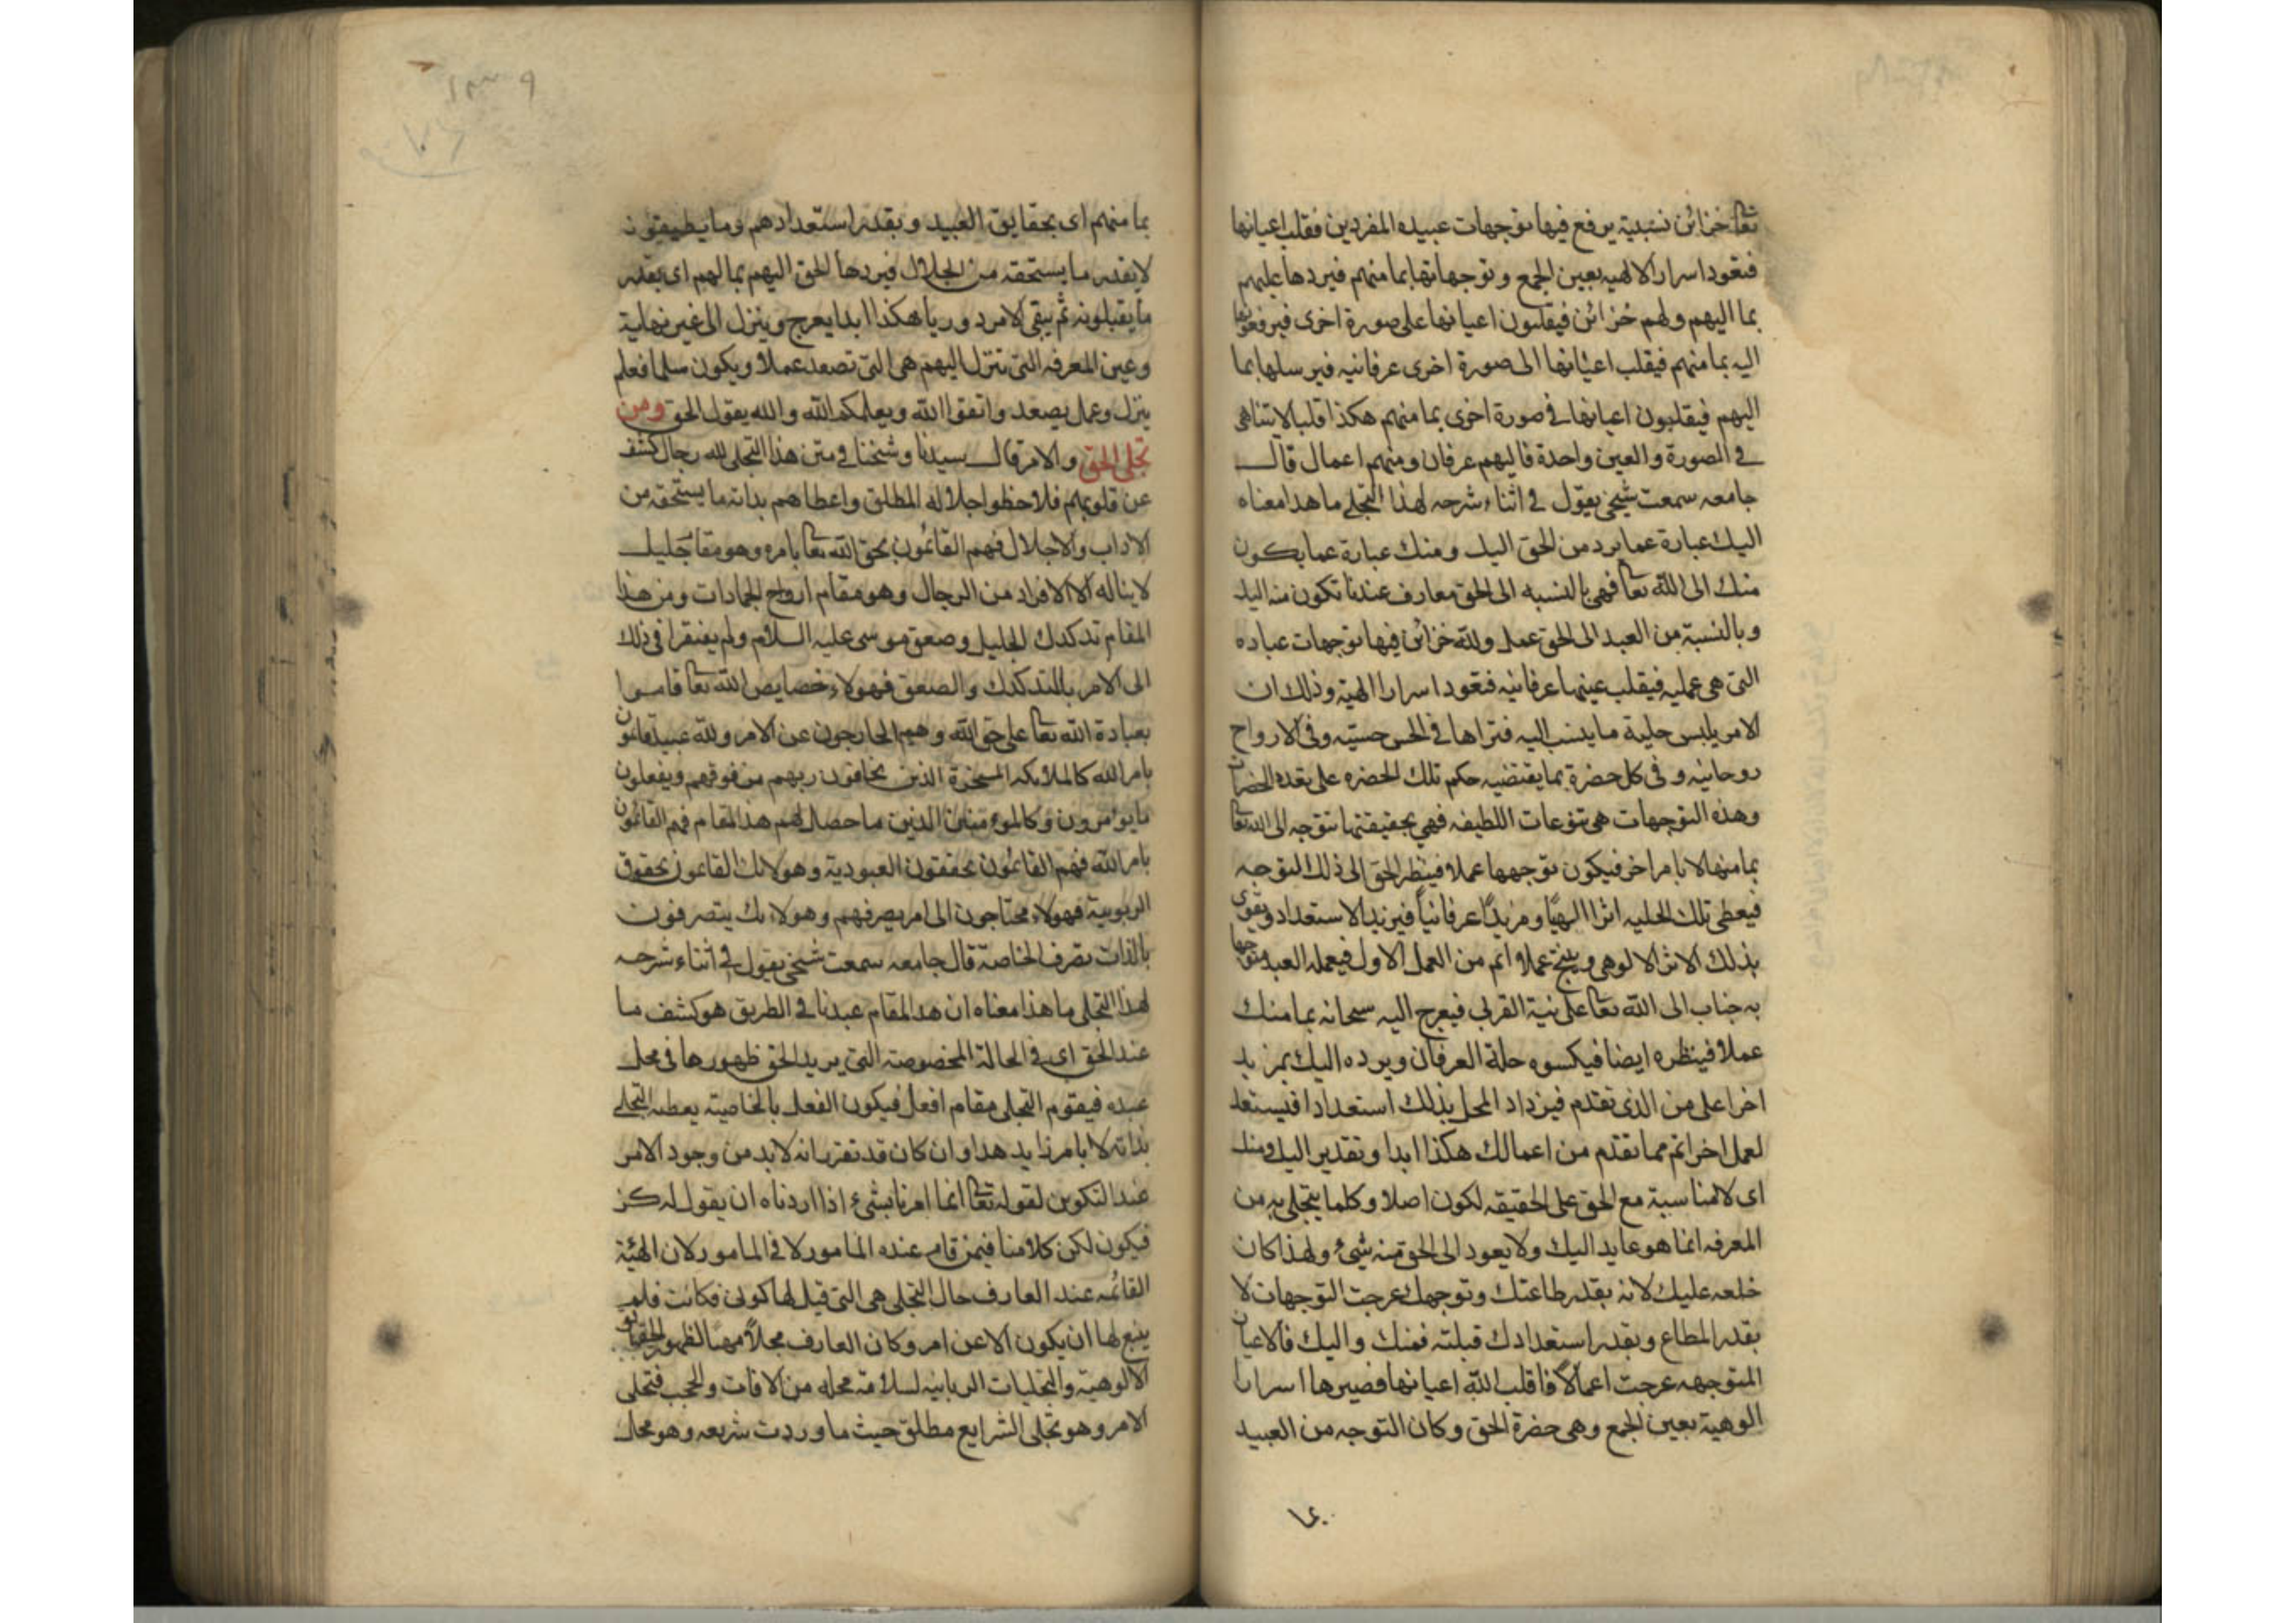 تعا خزائن نسبية يرفع فيها توجهات عبيده المفردين فقلب اعيانها
فتعود اسرار الالهيه بعين الجمع وتوجهاتها بما منهم فيردها عليهم
بما اليهم ولهم خزائن فيقلبون اعيانها على صورة اخرى فيرفعونها
اليه بما منهم فيقلب اعيانها الى صورة اخرى عرفانيه فيرسلها بما
اليهم فيقلبون اعيانها في صورة اخرى بما منهم هكذا قلبا لا يتناهى
في الصورة والعين واحدة فاليهم عرفان ومنهم اعمال قال
جامعه سمعت شيخي يقول في اثناء شرحه لهذا التجلي ما هذا معناه
اليك عبارة عما يرد من الحق اليك ومنك عبارة عما يكون
منك الى الله تعا فهي بالنسبه الى الحق معارف عندنا تكون منه اليك
وبالنسبة من العبد الى الحق عمل ولله خزائن فيها توجهات عباده
التى هى عمليه فيقلب عينها عرفانيه فتعود اسرارا الهية وذلك ان
الامر يلبس حلية ما ينسب اليه فتراها في الحس حسيّه وفى الارواح
روحانيه وفى كل حضرة بما يقتضيه حكم تلك الحضره على تعدد الحضرات
وهذه التوجهات هى تنوعات اللطيفه فهي بحقيقتها تتوجه الى الله تعا
بما منها لا بامر اخر فيكون توجهها عملا فينظر الحق الى ذلك التوجه
فيعطى تلك الحليه اثرا الهيًا ومزيدًا عرفانياً فيزيد الاستعداد ويقوى
بذلك الاثر الالوهى وينتج عملا اتم من العمل الاول فيعمله العبد متوجها
به جناب الى الله تعا على نية القربى فيعرج اليه سبحانه بما منك
عملا فينظره ايضا فيكسوه حلة العرفان ويرده اليك بمزيد
اخر اعلى من الذى تقدم فيزداد المحل بذلك استعدادا فيستعد
لعمل اخر اتم مما تقدم من اعمالك هكذا ابدا وتقدير اليك ومنك
اى لا مناسبة مع الحق على الحقيقه لكون اصلا وكلما يتجلى به من
المعرفه انما هو عايد اليك ولا يعود الى الحق منه شىء ولهذا كان
خلعه عليك لانه بقدر طاعتك وتوجهك عرجت التوجهات لا
بقدر المطاع وبقدر استعدادك قبلته فمنك واليك فالاعيان
المتوجهه عرجت اعمالاً فاقلب الله اعيانها فصيرها اسرارا
الوهية بعين الجمع وهى حضرة الحق وكان التوجه من العبيد
بما منهم اى بحقايق العبيد وبقدر استعدادهم وما يطيقونه
لا بقدر ما يستحقه من الجلال فيردها الحق اليهم بما لهم اى بقدر
ما يقبلونه ثم يبقى الامر دوريا هكذا ابدا يعرج وينزل الى غير نهاية
وعين المعرفه التى تنزل اليهم هى التى تصعد عملا ويكون سلما فعلم
ينزل وعمل يصعد واتقوا الله ويعلمكم الله والله يقول الحق ومن
تجلى الحق والامر قال سيدنا وشيخنا في متن هذا التجلى لله رجال كشف
عن قلوبهم فلاحظوا جلاله المطلق واعطاهم بذاته ما يستحقه من
الاداب والاجلال فهم القائمون بحق الله تعا بامره وهو مقام جليل
لا يناله الا الافراد من الرجال وهو مقام ارواح الجمادات ومن هذا
المقام تدكدك الجليل وصعق موسى عليه السلام ولم يفتقرا في ذلك
الى الامر بالتدكدك والصعق فهولاء خصايص الله تعا قاموا
بعبادة الله تعا على حق الله وهم الخارجون عن الامر ولله عبيد قائمون
بامر الله كالملائكه المسخرة الذين يخافون ربهم من فوقهم ويفعلون
ما يؤمرون وكالمؤمنين الذين ما حصل لهم هذا المقام فهم القائمون
بامر الله فهم القائمون بحقوق العبودية وهولائك القائمون بحقوق
الربوبية فهولاء محتاجون الى امر يصرفهم وهولائك يتصرفون
بالذات تصرف الخاصة قال جامعه سمعت شيخي يقول في اثناء شرحه
لهذا التجلى ما هذا معناه ان هذا المقام عندنا في الطريق هو كشف ما
عند الحق اى في الحالة المخصوصة التى يريد الحق ظهورها في محل
عبده فيقوم التجلى مقام افعل فيكون الفعل بالخاصية يعطيه التجلي
بذاته لا بامر زايد هدا وان كان قد تقرر انه لا بد من وجود الامر
عند التكوين لقوله تعا انما امرنا بشيء اذا اردناه ان يقول له كن
فيكون لكن كلامنا فيمن قام عنده المامور لا في المامور لان الهيئة
القائمه عند العارف حال التجلى هى التى قيل لها كونى فكانت فلم
ينبغ لها ان يكون الا عن امر وكان العارف مجلاً مهيا لظهور الحقايق
الالوهية والتجليات الربانيه لسلامة محله من الافات والحجب فتجلى
الامر وهو تجلى الشرايع مطلق حيث ما وردت شريعه وهو محال